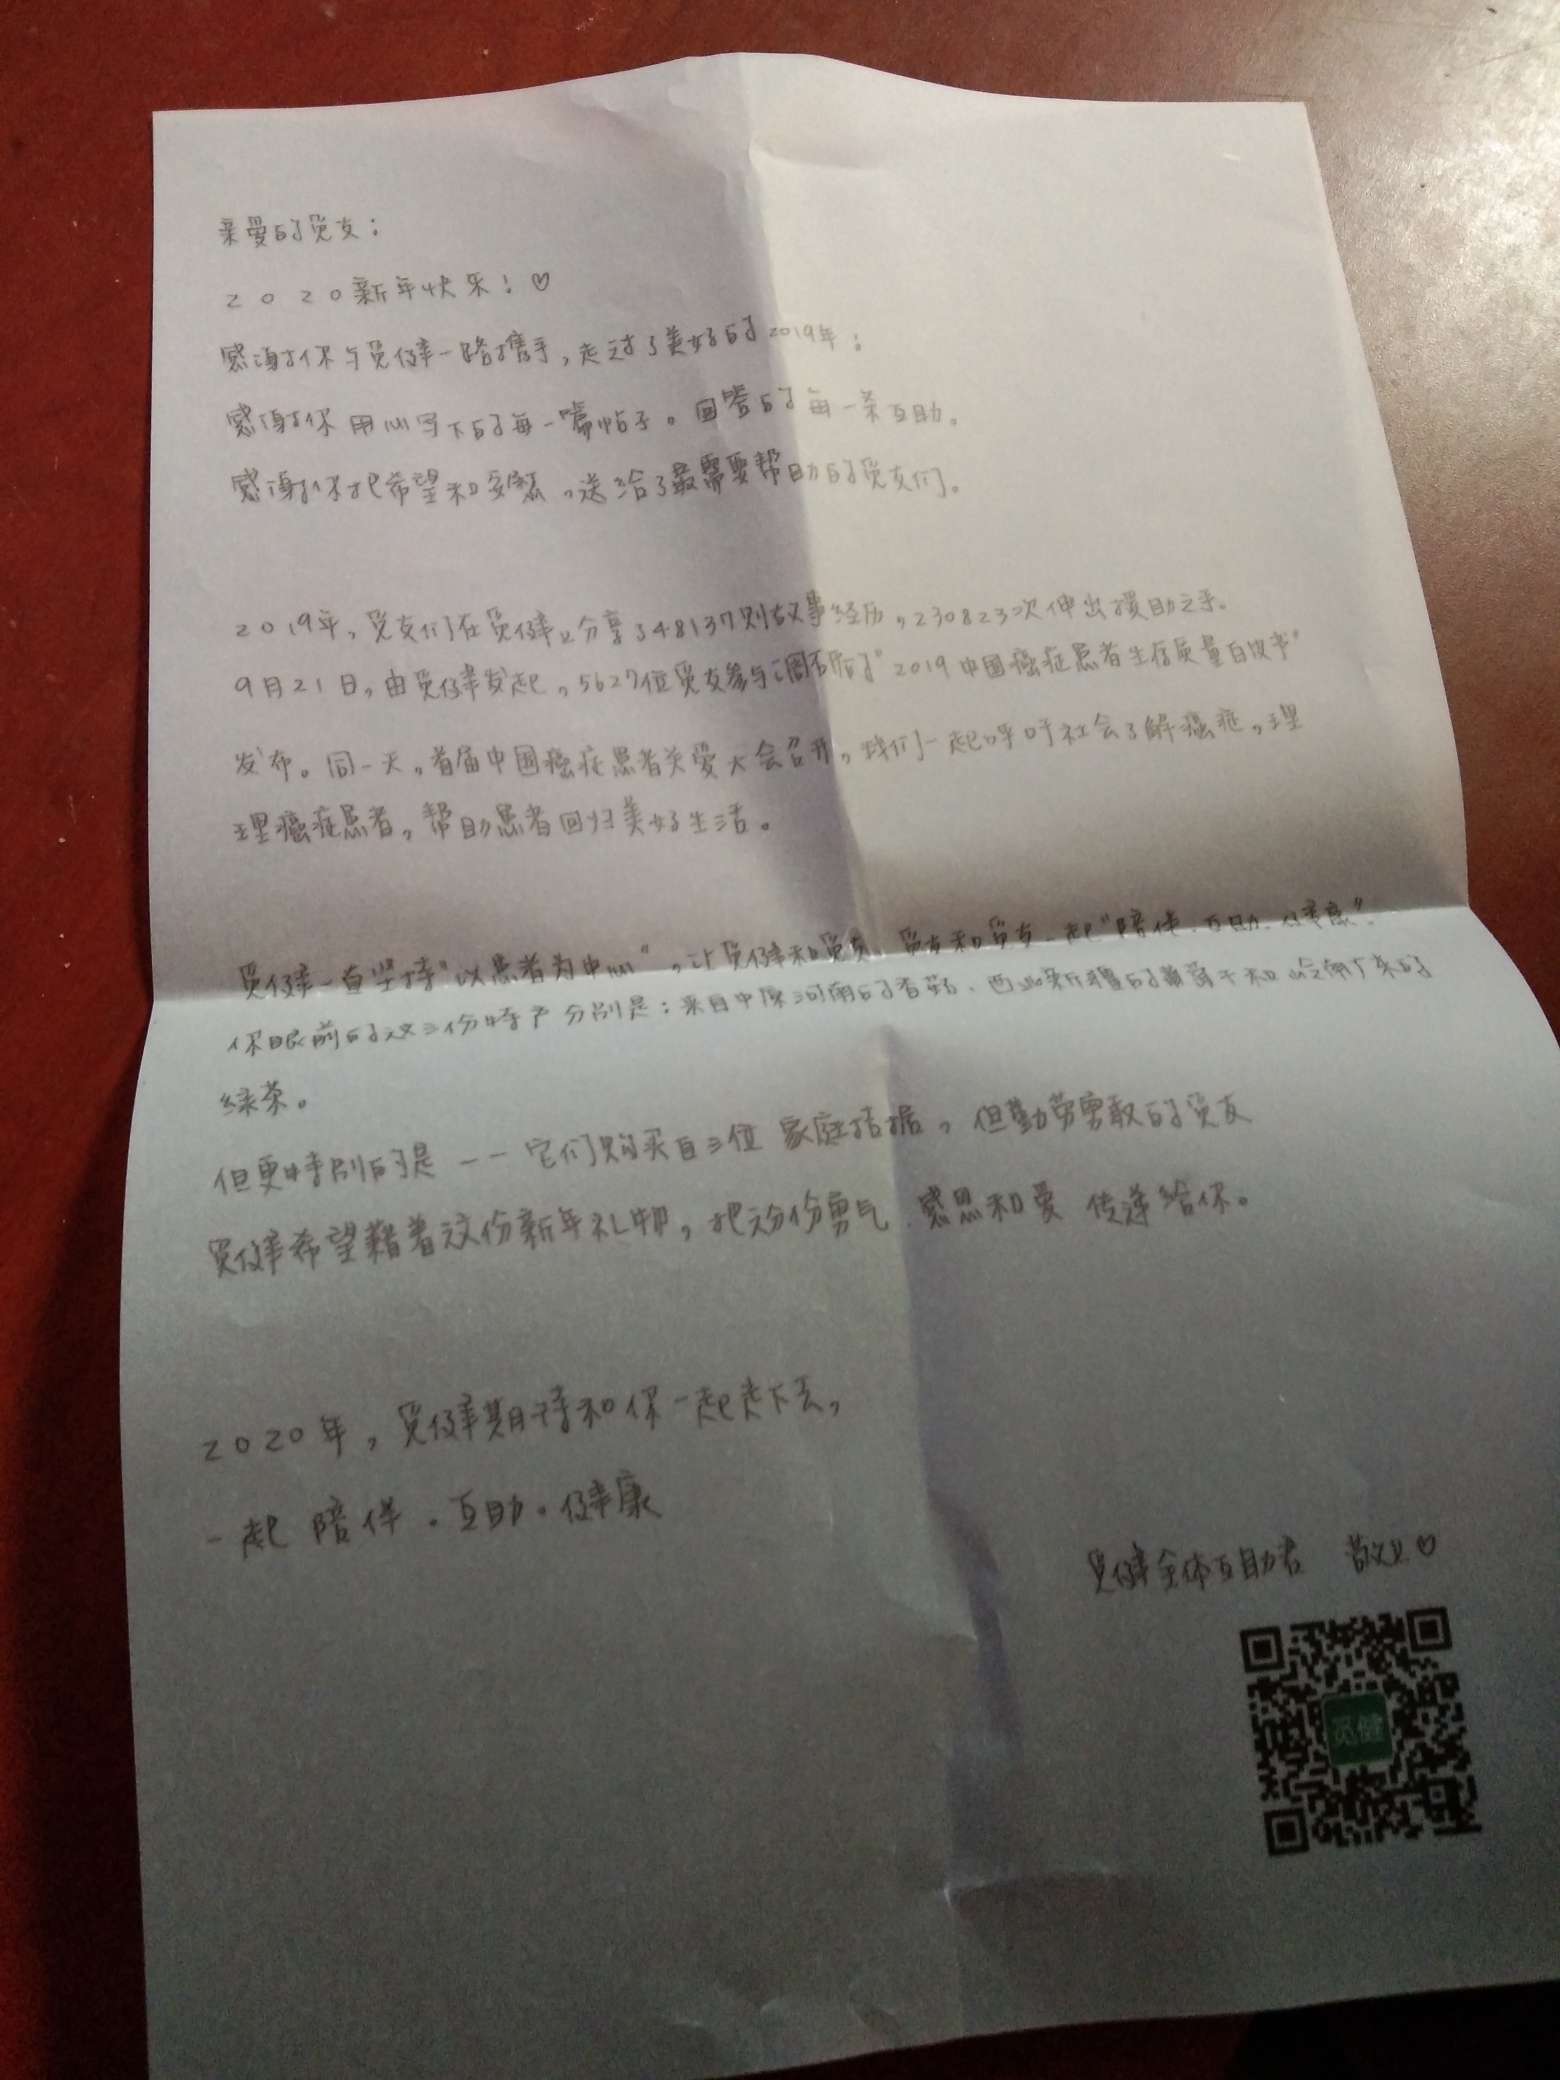 亲爱的觅友：
2020新年快乐！♡
感谢你与觅健一路携手，走过了美好的2019年；
感谢你用心写下的每一篇帖子。回答的每一条互助。
感谢你把希望和安慰，送给了最需要帮助的觅友们。
2019年，觅友们在觅健上分享348137则故事经历，230823次伸出援助之手。
9月21日，由觅健发起，5627位觅友参与调研的"2019中国癌症患者生存质量白皮书"
发布。同一天，首届中国癌症患者关爱大会召开，我们一起呼吁社会了解癌症，理
理癌症患者，帮助患者回归美好生活。
觅健一直坚持"以患者为中心"，让觅健和觅友、觅友和觅友一起"陪伴.互助.健康"。
你眼前的这三份特产分别是：来自中原河南的香菇、西北新疆的葡萄干和岭南广东的
绿茶。
但更特别的是——它们购买自三位家庭拮据，但勤劳勇敢的觅友
觅健希望藉着这份新年礼物，把这份勇气 感恩和爱 传递给你。
2020年，觅健期待和你一起走下去，
一起 陪伴.互助.健康
觅健全体互助者 敬上♡
觅健